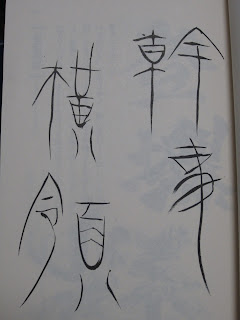 幹事
横領